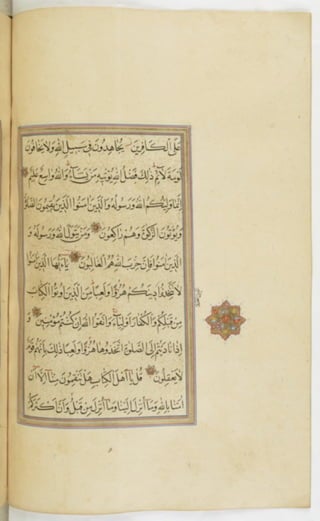 على الكافرين يجاهدون في سبيل الله ولا يخافون
لومة لائم ذلك فضل الله يؤتيه من يشاء والله واسع عليم
إنما وليكم الله ورسوله والذين آمنوا الذين يقيمون الصلوة
ويؤتون الزكوة وهم راكعون ومن يتول الله ورسوله و
الذين آمنوا فإن حزب الله هم الغالبون يا أيها الذين آمنوا
لا تتخذوا دينكم هزوا ولعبا من الذين أوتوا الكتاب
من قبلكم والكفار أولياء واتقوا الله إن كنتم مؤمنين و
إذا ناديتم إلى الصلوة اتخذوها هزوا ولعبا ذلك بأنهم قوم
لا يعقلون قل يا أهل الكتاب هل تنقمون منا إلا أن
آمنا بالله وما أنزل إلينا وما أنزل من قبل وأن أكثركم